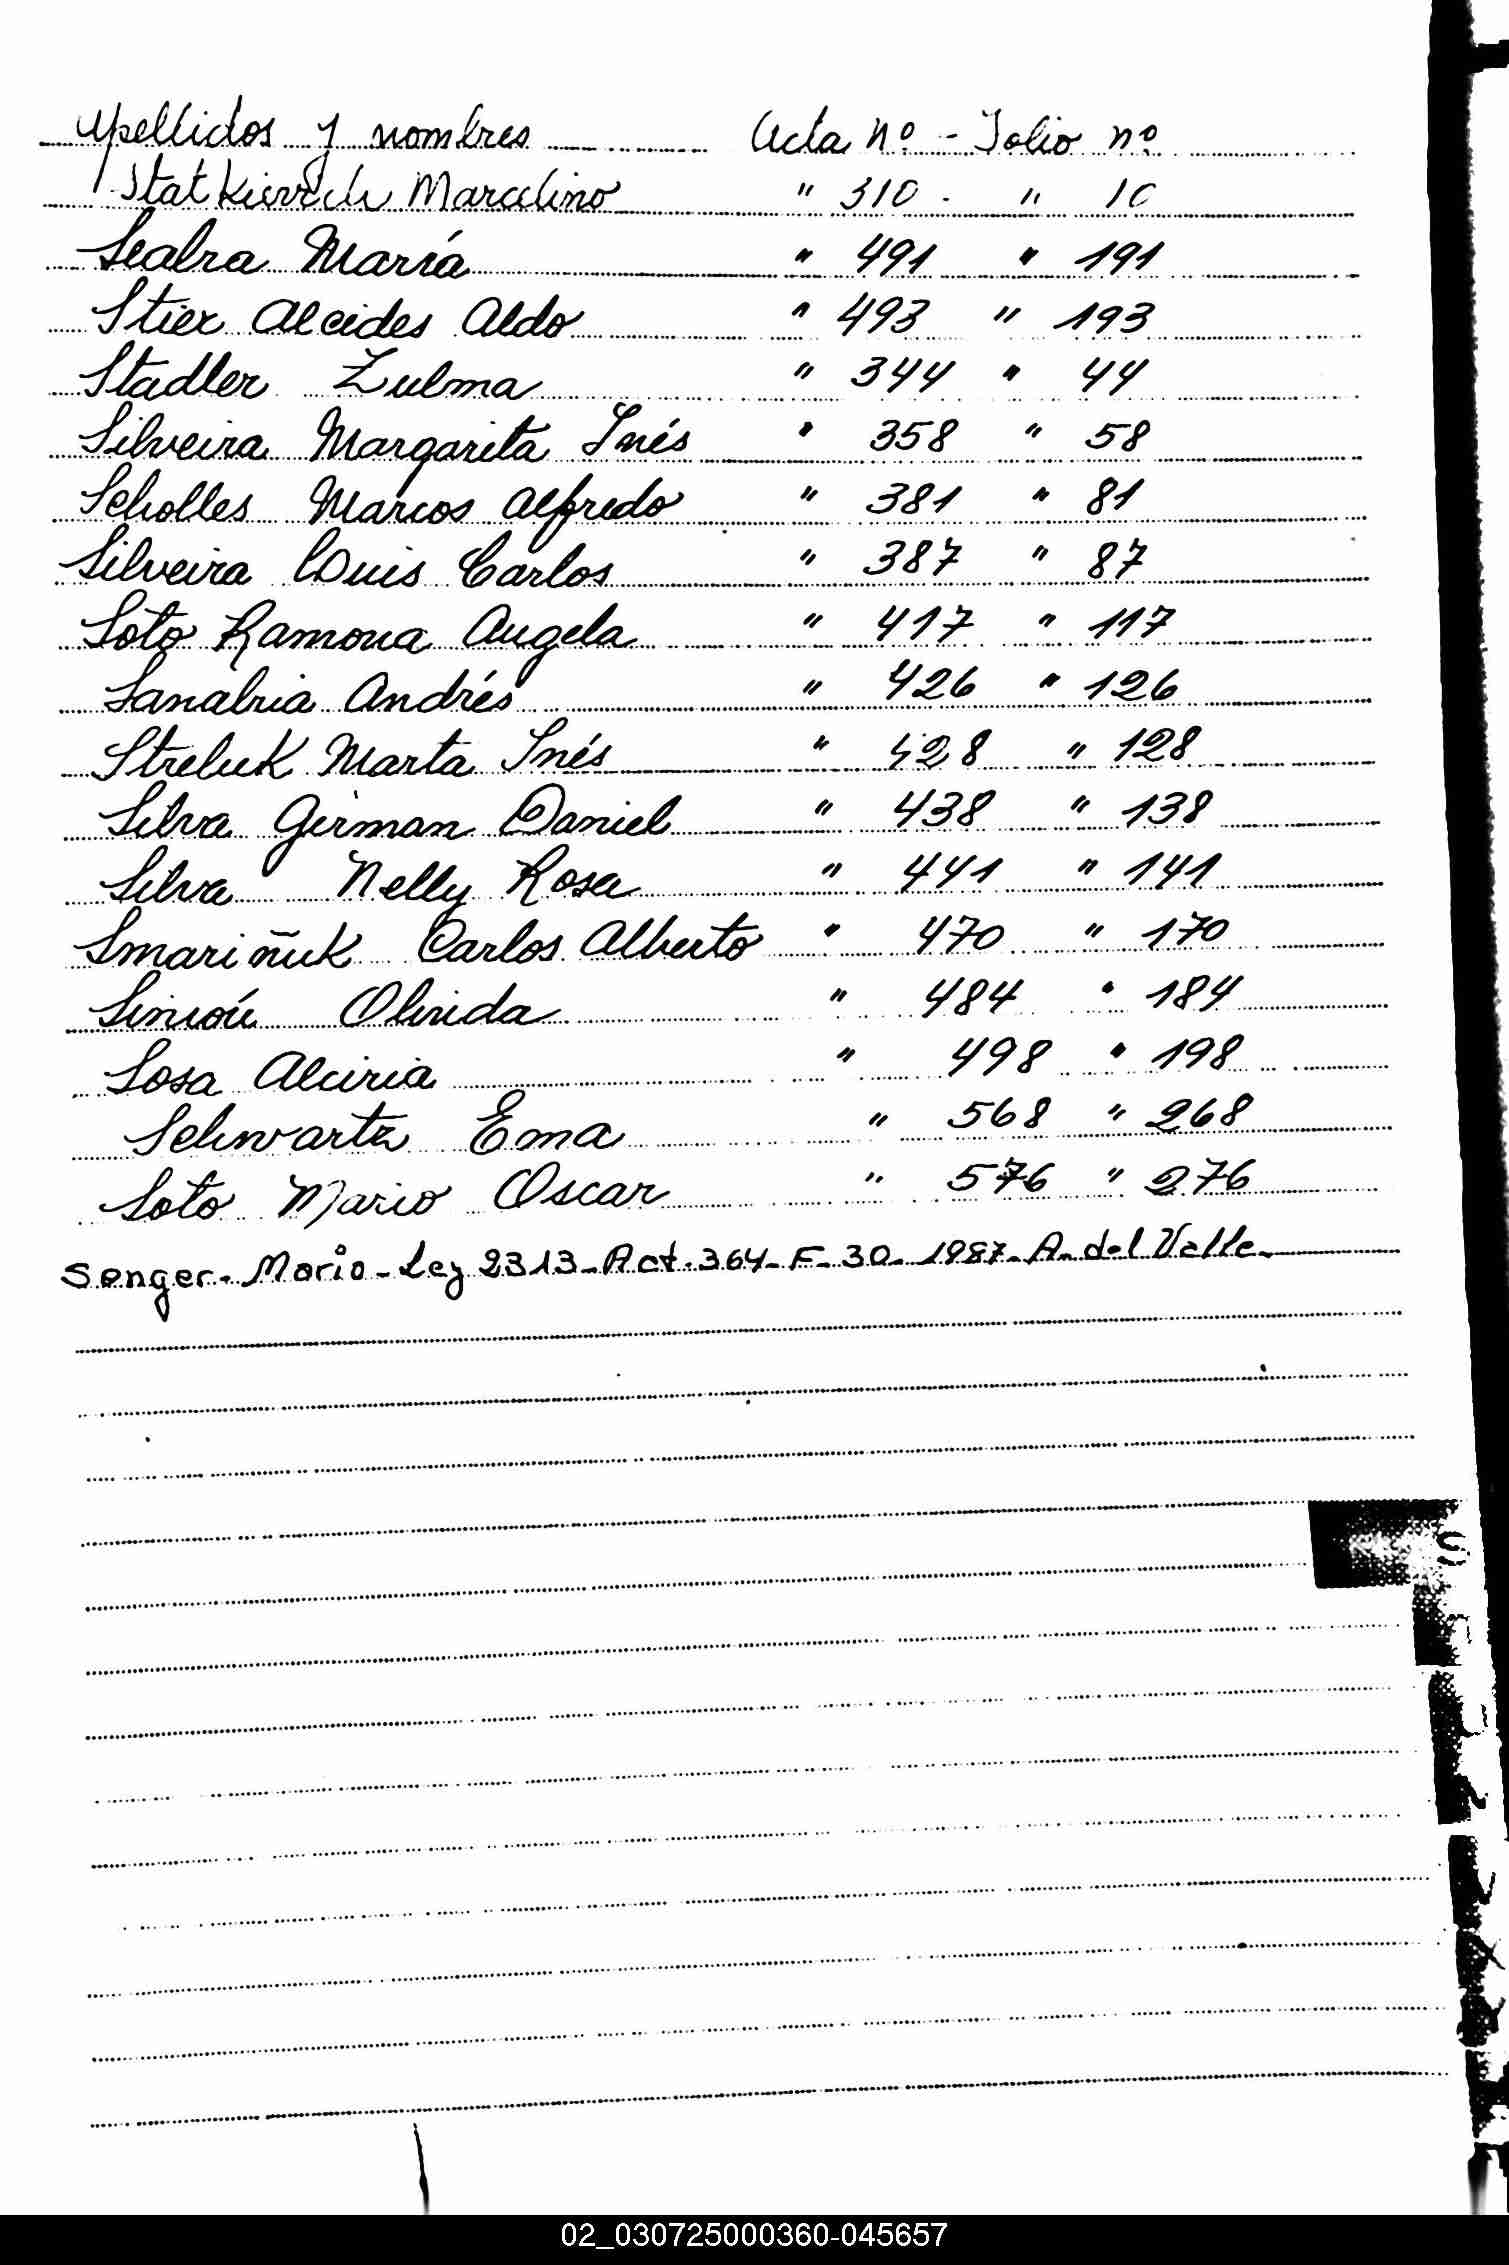 Apellidos y nombres Acta nº - Folio nº
Statkievich Marcelino " 310 - " 10
Seabra María " 491 " 191
Stier Alcides Aldo " 493 " 193
Stadler Zulma " 344 " 44
Silveira Margarita Inés " 358 " 58
Scholles Marcos Alfredo " 381 " 81
Silveira Luis Carlos " 387 " 87
Soto Ramona Angela " 417 " 117
Sanabria Andrés " 426 " 126
Streluk Marta Inés " 428 " 128
Silva Germán Daniel " 438 " 138
Silva Nelly Rosa " 441 " 141
Smariñuk Carlos Alberto " 470 " 170
Simón Olinda " 484 " 184
Sosa Alciria " 498 " 198
Schwartz Ema " 568 " 268
Soto Mario Oscar " 576 " 276
Senger. Mario - Ley 2313 - Act. 364 - F - 30 - 1987 - A. del Valle -
02_030725000360-045657